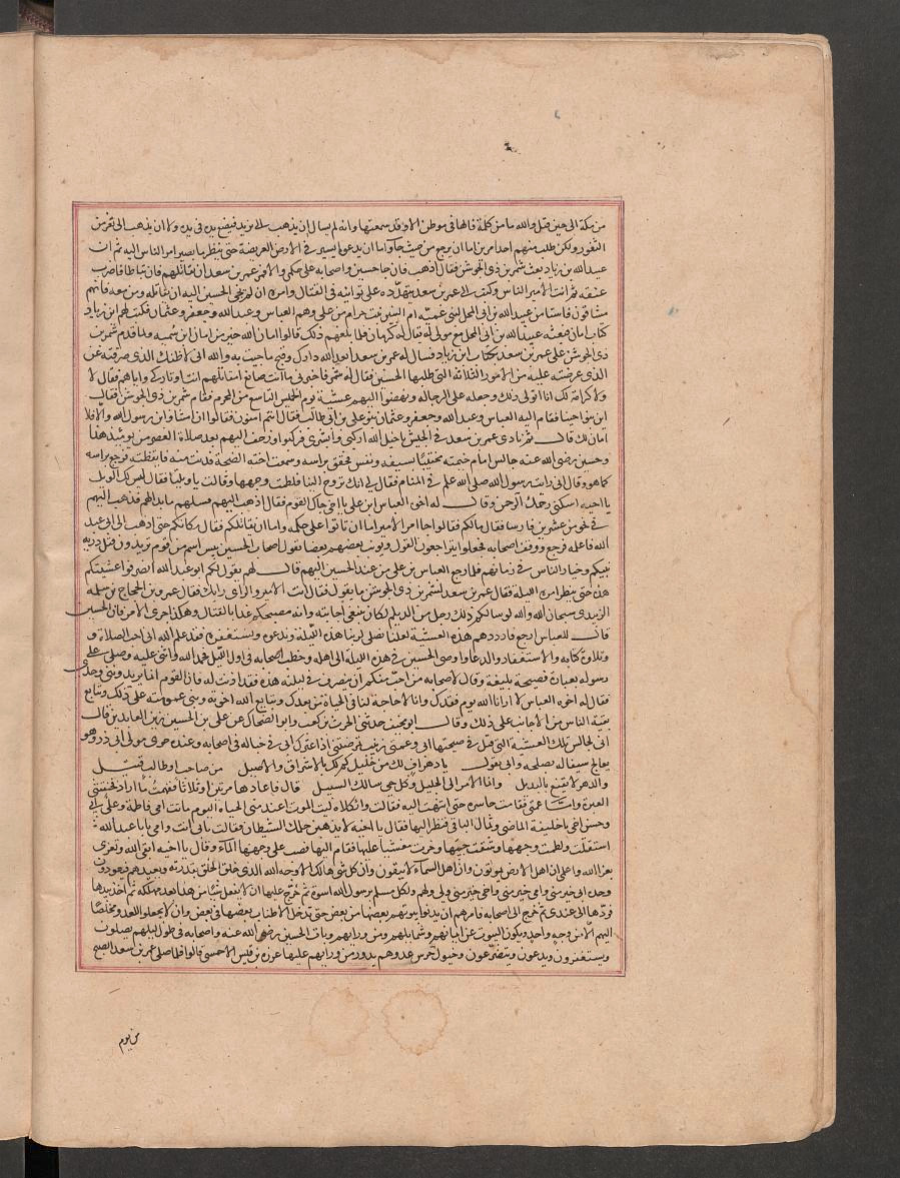 من مكة الى حين قتل والله ما من كلمة قالها في موطن الا وقد سمعتها وانه لم يسال ان يذهب الى يزيد فيضع يده في يده ولا ان يذهب الى ثغر من
الثغور ولكن طلب منهم احد امرين اما ان يرجع من حيث جا واما ان يدعوه يسير في الارض العريضة حتى ينظر ما يصير امر الناس اليه ثم ان
عبيد الله بن زياد بعث شمر بن ذي الجوشن فقال اذهب فان جا حسين واصحابه على حكمي والا فمر عمر بن سعد ان يقاتلهم فان تباطا فاضرب
عنقه ثم انت الامير على الناس وكتب الى عمر بن سعد يتهدده على توانيه في القتال وامره ان لم يجئ الحسين اليه ان يقاتله ومن معه فانهم
مشاقون فاستامن عبيد الله بن ابي المحل لبني عمته ام البنين بنت حرام من علي وهم العباس وعبد الله وجعفر وعثمان فكتب لهم ابن زياد
كتاب امان وبعثه عبيد الله بن ابي المحل مع مولى له يقال له كرمان فلما بلغهم ذلك قالوا امان الله خير من امان ابن سمية ولما قدم شمر بن
ذي الجوشن على عمر بن سعد بكتاب ابن زياد فقال له عمر بن سعد ابعد الله دارك وقبح ما جيت به والله اني لاظنك الذي صرفته عن
الذي عرضت عليه من الامور الثلاثة التي طلبها الحسين فقال له شمر فاخبرني ما انت صانع اتقاتلهم انت او تاركي واياهم فقال لا
ولا كرامة لك انا اتولى ذلك وجعله على الرجالة ونهضوا اليهم عشية يوم الخميس التاسع من المحرم فقام شمر بن ذي الجوشن فقال
اين بنو اختنا فقام اليه العباس وعبد الله وجعفر وعثمان بنو علي بن ابي طالب فقال انتم امنون فقالوا ان امنتنا وابن رسول الله والا فلا
امان لك قال ثم نادى عمر بن سعد في الجيش يا خيل الله اركبي وابشري فركبوا وزحف اليهم بعد صلاة العصر من يومئذ هذا
وحسين رضي الله عنه جالس امام خيمته محتبيا بسيفه ونعس فخفق براسه وسمعت اخته الضجة فدنت منه فايقظته فرجع براسه
كما هو وقال اني رايت رسول الله صلى الله عليه وسلم في المنام فقال لي انك تروح الينا فلطمت وجهها وقالت يا ويلتا فقال ليس لك الويل
يا اخيه اسكني رحمك الرحمن وقال له اخوه العباس ابن علي يا اخي جاك القوم فقال اذهب اليهم فسلهم ما بدا لهم فذهب اليهم
في نحو من عشرين فارسا فقال مالكم فقالوا جا امر الامير اما ان تاتوا على حكمه واما ان نقاتلكم فقال مكانكم حتى اذهب الى ابي عبد
الله فاعلمه فرجع ووقف اصحابه فجعلوا يتراجعون القول ويونب بعضهم بعضا يقول اصحاب الحسين بيس القوم انتم قوم تريدون قتل ذرية
نبيكم وخيار الناس في زمانهم فلما رجع العباس بن علي من عند الحسين اليهم قال لهم يقول لكم ابو عبد الله انصرفوا عشيتكم
هذه حتى ينظر امره الليلة فقال عمر بن سعد لشمر بن ذي الجوشن ما يقول فقال انت الامير والراي رايك فقال عمرو بن الحجاج بن سلمه
الزبيدي سبحان الله والله لو سالكم ذلك رجل من الديلم لكان ينبغي اجابته وانه مصبحكم غدا بالقتال وهكذا جرى الامر فان الحسين
قال للعباس ارجع فارددهم هذه العشية لعلنا نصلي لربنا هذه الليلة وندعوه ونستغفره فقد علم الله اني احب الصلاة و
وتلاوة كتابه والاستغفار والدعا واوصى الحسين في هذه الليلة الى اهله وخطب اصحابه في اول الليل فحمد الله واثنى عليه وصلى على
رسوله بعبارة فصيحة بليغة وقال لاصحابه من احب منكم ان ينصرف في ليلته هذه فقد اذنت له فان القوم انما يريدونني وحدي
فقال له اخوه العباس لا ارانا الله يوم فقدك وانا لا حاجة لنا في الحياة من بعدك وتتابع الله اخوته وبني عمومته على ذلك وتتابع
بقية الناس من الاجانب على ذلك وقال ابو مخنف حدثني الحرث بن كعب وابو الضحاك عن علي بن الحسين زين العابدين قال
اني لجالس تلك العشية التي قتل في صبحتها ابي وعمتي زينب تمرضني اذا اعتزل ابي في خبائه في اصحابه وعنده حوي مولى ابي ذر وهو
يعالج سيفا له يصلحه وابي يقول يا دهر اف لك من خليل كم لك بالاشراق والاصيل من صاحب او طالب قتيل
والدهر لا يقنع بالبديل وانما الامر الى الجليل وكل حي سالك السبيل قال فاعادها مرتين او ثلاثا ففهمت ما اراد فخنقتني
العبرة واما عمتي فقامت حاسره حتى انتهت اليه فقالت واثكلاه ليت الموت اعدمني الحياة اليوم ماتت امي فاطمة وعلي ابي
وحسن اخي يا خليفة الماضي وثمال الباقي فنظر اليها فقال يا اخيه لا يذهبن حلمك الشيطان فقالت بابي انت وامي يا ابا عبد الله
استقتلت ولطمت وجهها وشقت جيبها وخرت مغشيا عليها فقام اليها فصب على وجهها الماء وقال يا اخيه اتقي الله وتعزي
بعزا الله واعلمي ان اهل الارض يموتون وان اهل السماء لا يبقون وان كل شي هالك الا وجه الله الذي خلق الخلق بقدرته ويعيدهم فيعودون
وحده ابي خير مني وامي خير مني واخي خير مني ولي ولهم ولكل مسلم برسول الله اسوة ثم حرج عليها ان لا تفعل شيا من هذا بعد مهلكه ثم اخذ بيدها
فردها الى عندي ثم خرج الى اصحابه فامرهم ان يدنوا بيوتهم بعضها من بعض حتى تدخل الاطناب بعضها في بعض وان لا يجعلوا للعدو مخلصا
اليهم الا من وجه واحد ويكون البيوت عن ايمانهم وشمايلهم ومن ورايهم وبات الحسين رضي الله عنه واصحابه في طول ليلهم يصلون
ويستغفرون ويدعون ويتضرعون وخيول حرس عدوهم يدور من ورايهم عليها عزرة بن قيس الاحمسي قالوا فلما صلى عمر بن سعد الصبح
من يوم